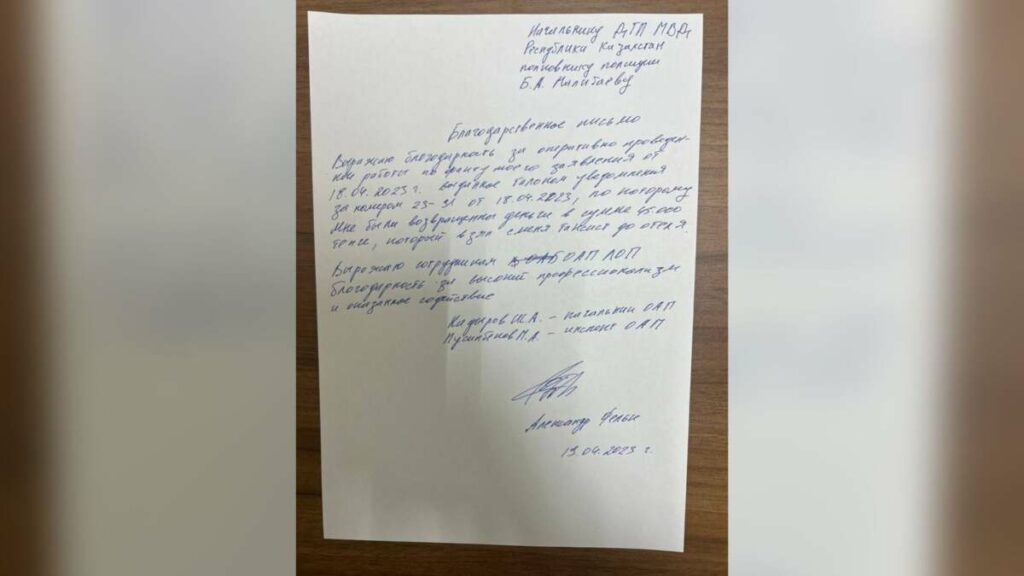 Начальнику ДТП МВД
Республики Казахстан
полковнику полиции
Б.А. Малибаеву
Благодарственное письмо
Выражаю благодарность за оперативно проведен-
ной работы по факту моего заявления от
18.04.2023 г. выданное талоном уведомления
за номером 23-31 от 18.04.2023, по которому
мне были возвращены деньги в сумме 45.000
тенге, который взял с меня таксист до отеля.
Выражаю сотрудникам ОАП ЛОП
благодарность за высокий профессионализм
и оказанное содействие
Кадыров Ш.А. – начальник ОАП
– инспект ОАП
Александр
19.04.2023 г.